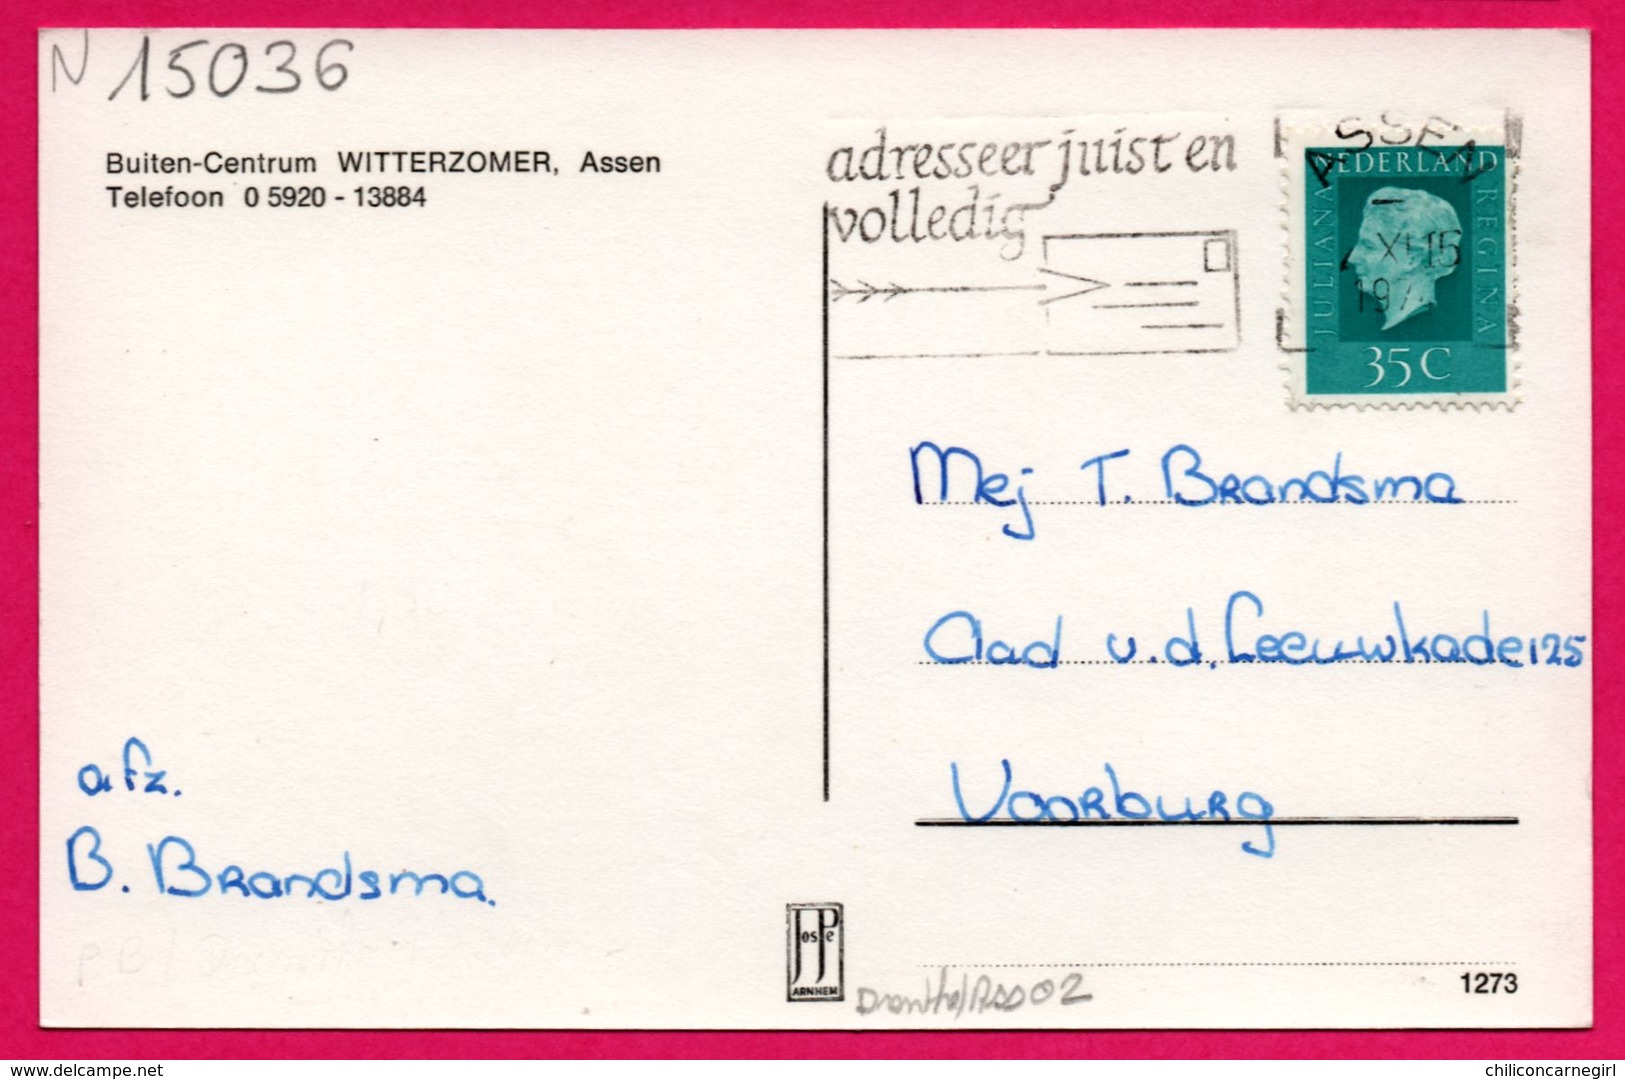 N 15036
Buiten-Centrum WITTERZOMER, Assen
Telefoon 0 5920 - 13884
adresseer juist en
volledig
ASSEN
NEDERLAND
JULIANA
REGINA
XI.15
35 C
Mej T. Brandsma
Aad v.d. Leeuwkade 125
Voorburg
afz.
B. Brandsma.
JosPe
ARNHEM
Drenthe/Ass 02
1273
www.delcampe.net
chiliconcarnegirl